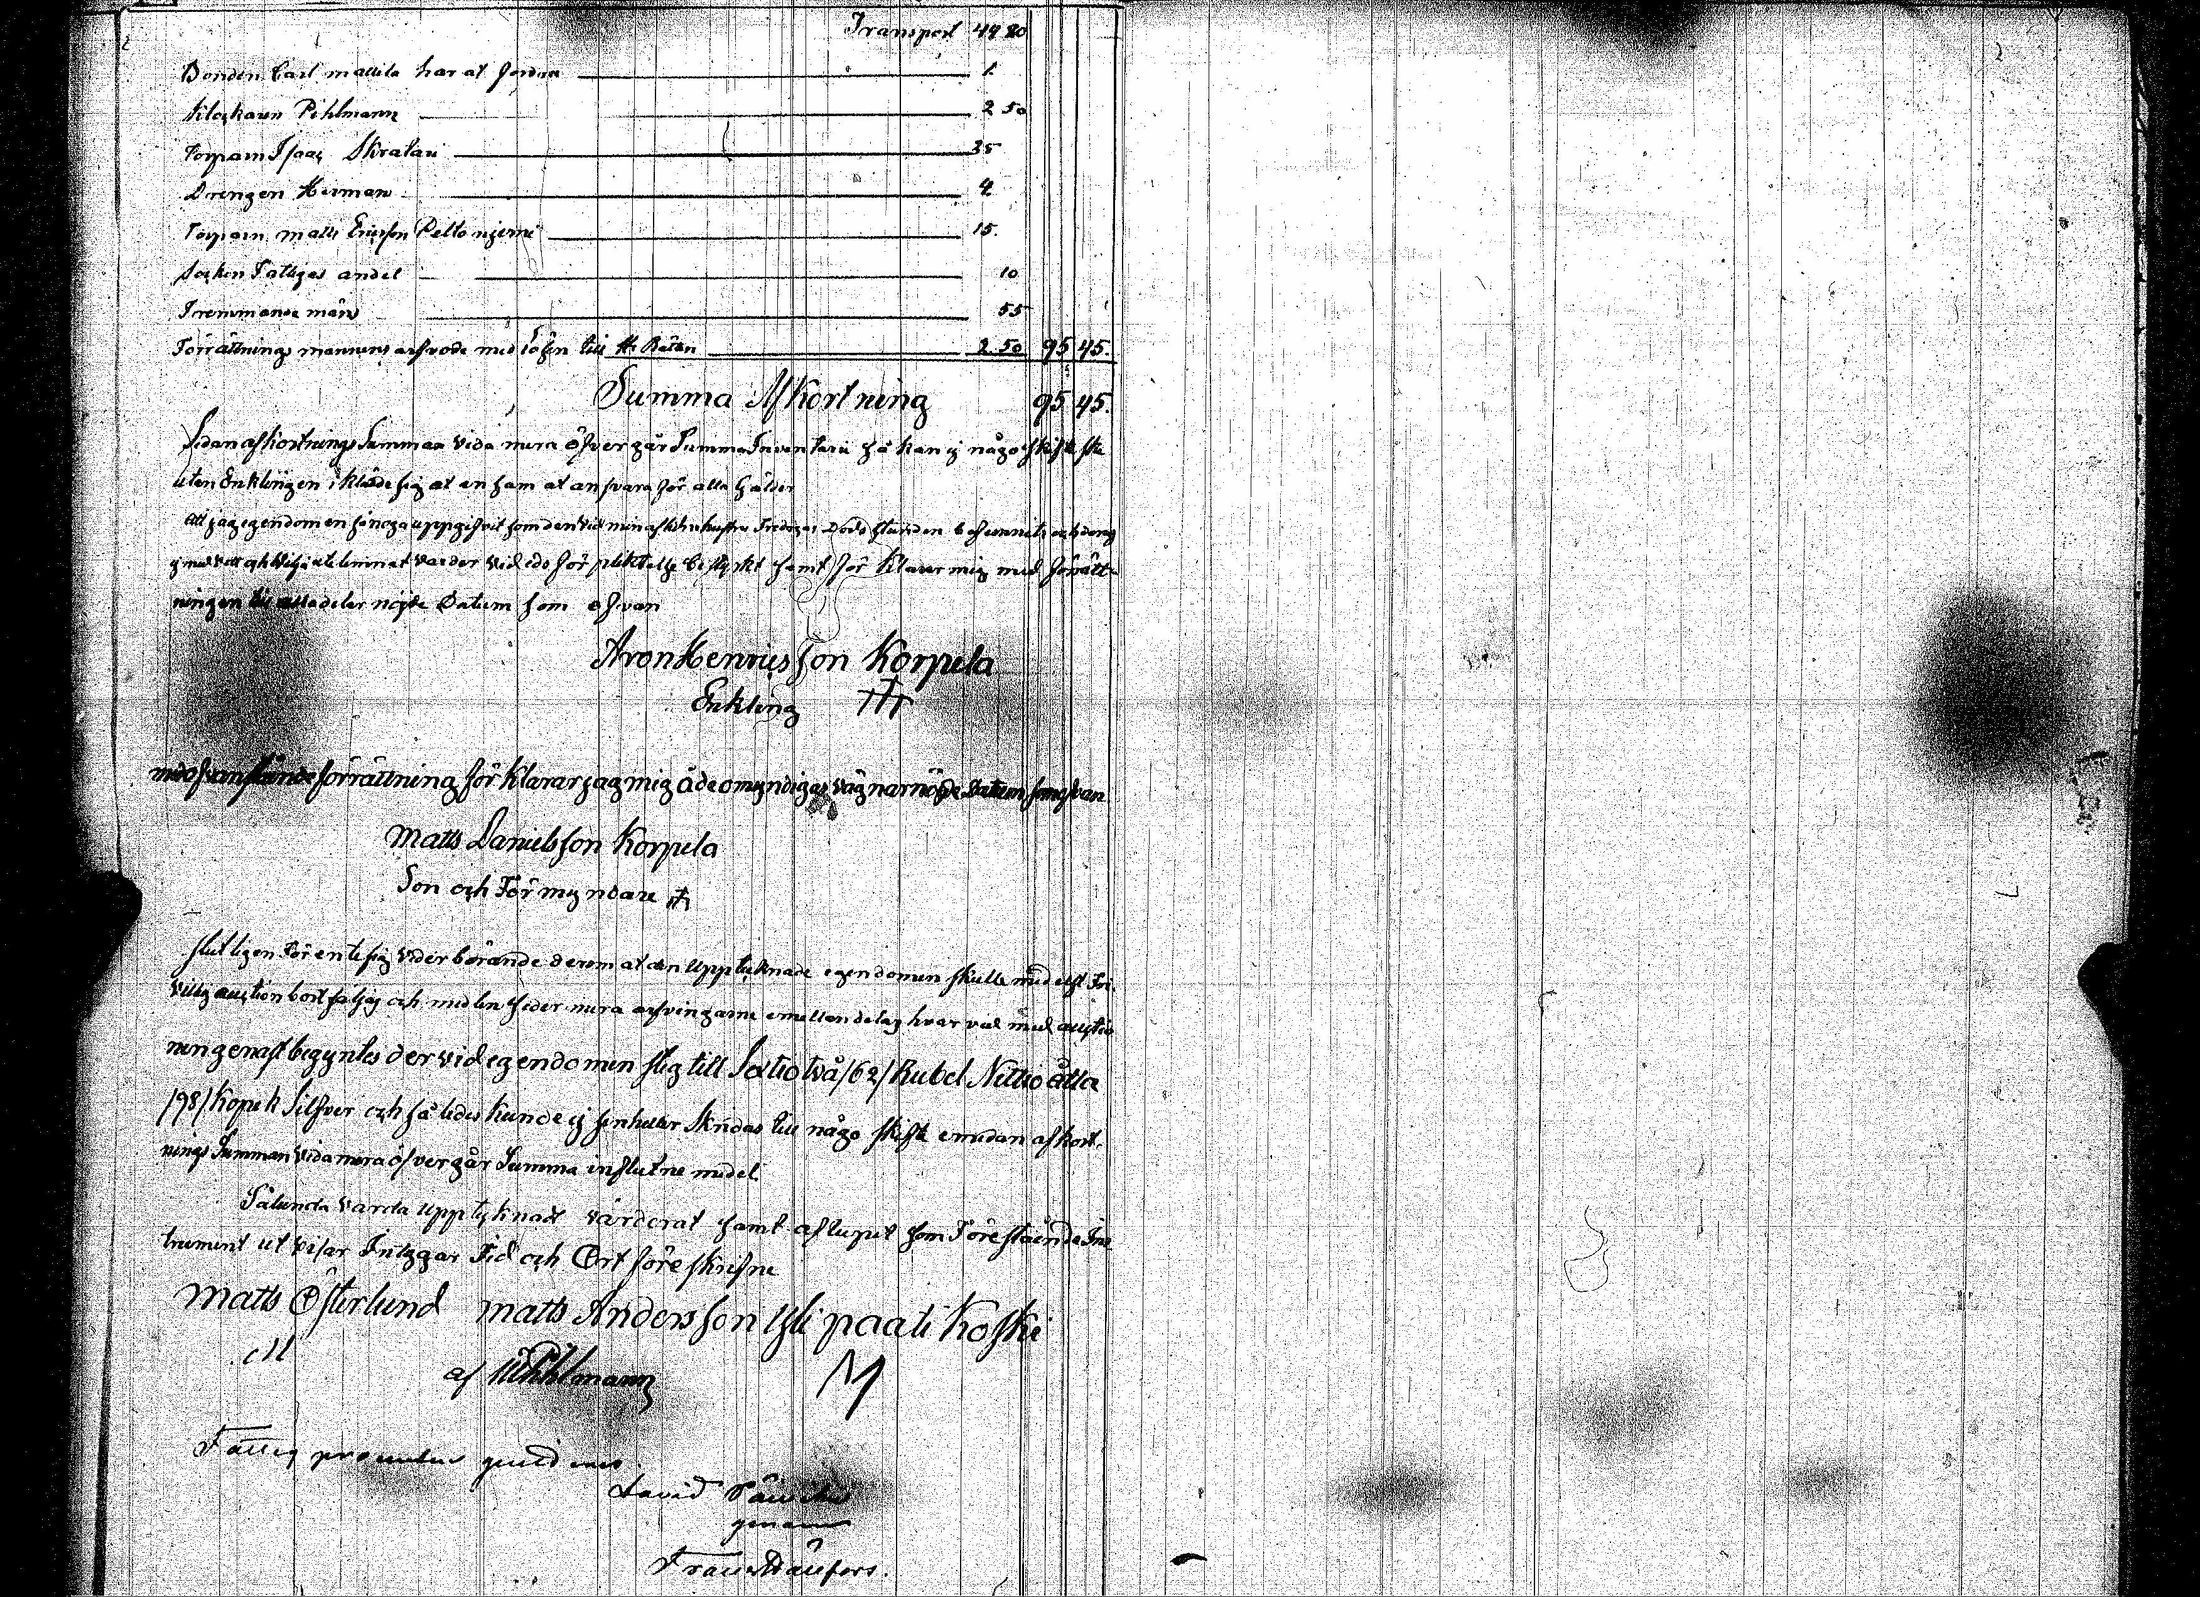 Transport 49 80
Bonden Carl mattila har at fordra 1.
Klockaren Pihlmann 2 50
Torparn Isaac Skratari 35
Drengen Herman 4
Torparn matts Ericsson Peltoniemi 15.
Socken Fattigas andel 10
Tremmanne män 55
Förrättnings mannens arfvode med Lösen till 2.50 95 45.
Summa Afkortning 95 45.
Sedan afkortnings Summan vida mera öfvergår Summa Inventarii så kan ej någo skifte ske
utan Enklingen iklæde sig at en sam at ansvara för alla Gälder
Att jag egendomen så noga uppgifvit som den vid min aflidna hustru Fredricas Döds stunden befunnits och deraf
ej med vett och vilja utelemnat varder vid eds för pliktelse bestyrkt samt för klarar mig med förrätt-
ningen till alla delar nöjde Datum som ofvan
Aron Henricsson Korpela
Enkling
med ofvanstående förrättning för klarar jag mig å de omyndigas vägnar nöjde Datum som ofvan
Matts Danielsson Korpela
Son och Förmyndare
slutligen Förente sig vederbörande derom at den upptecknade egendomen skulle medelst Fri-
villig auction bortsäljas och medlen seder mera arfvingarne emellan delas hvar vid med auctio
ningen börjades der vid egendomen steg till Sextio två /62/ Rubel Nittio åtta
/98/ Kopek Silfver och således kunde ej häller Skridas till någo skifte emedan afkort-
nings Summan vida mera öfvergår Summa influtne medel
Sålunda varda upptecknadt värderat samt aflupit som Förestående Ins
trument ut visar Intygar Tid och Ort föreskrifne
Matts Österlund matts Andersson Yli paati Koski
M
af Pihlmann M
Fattig procenten
David
genom